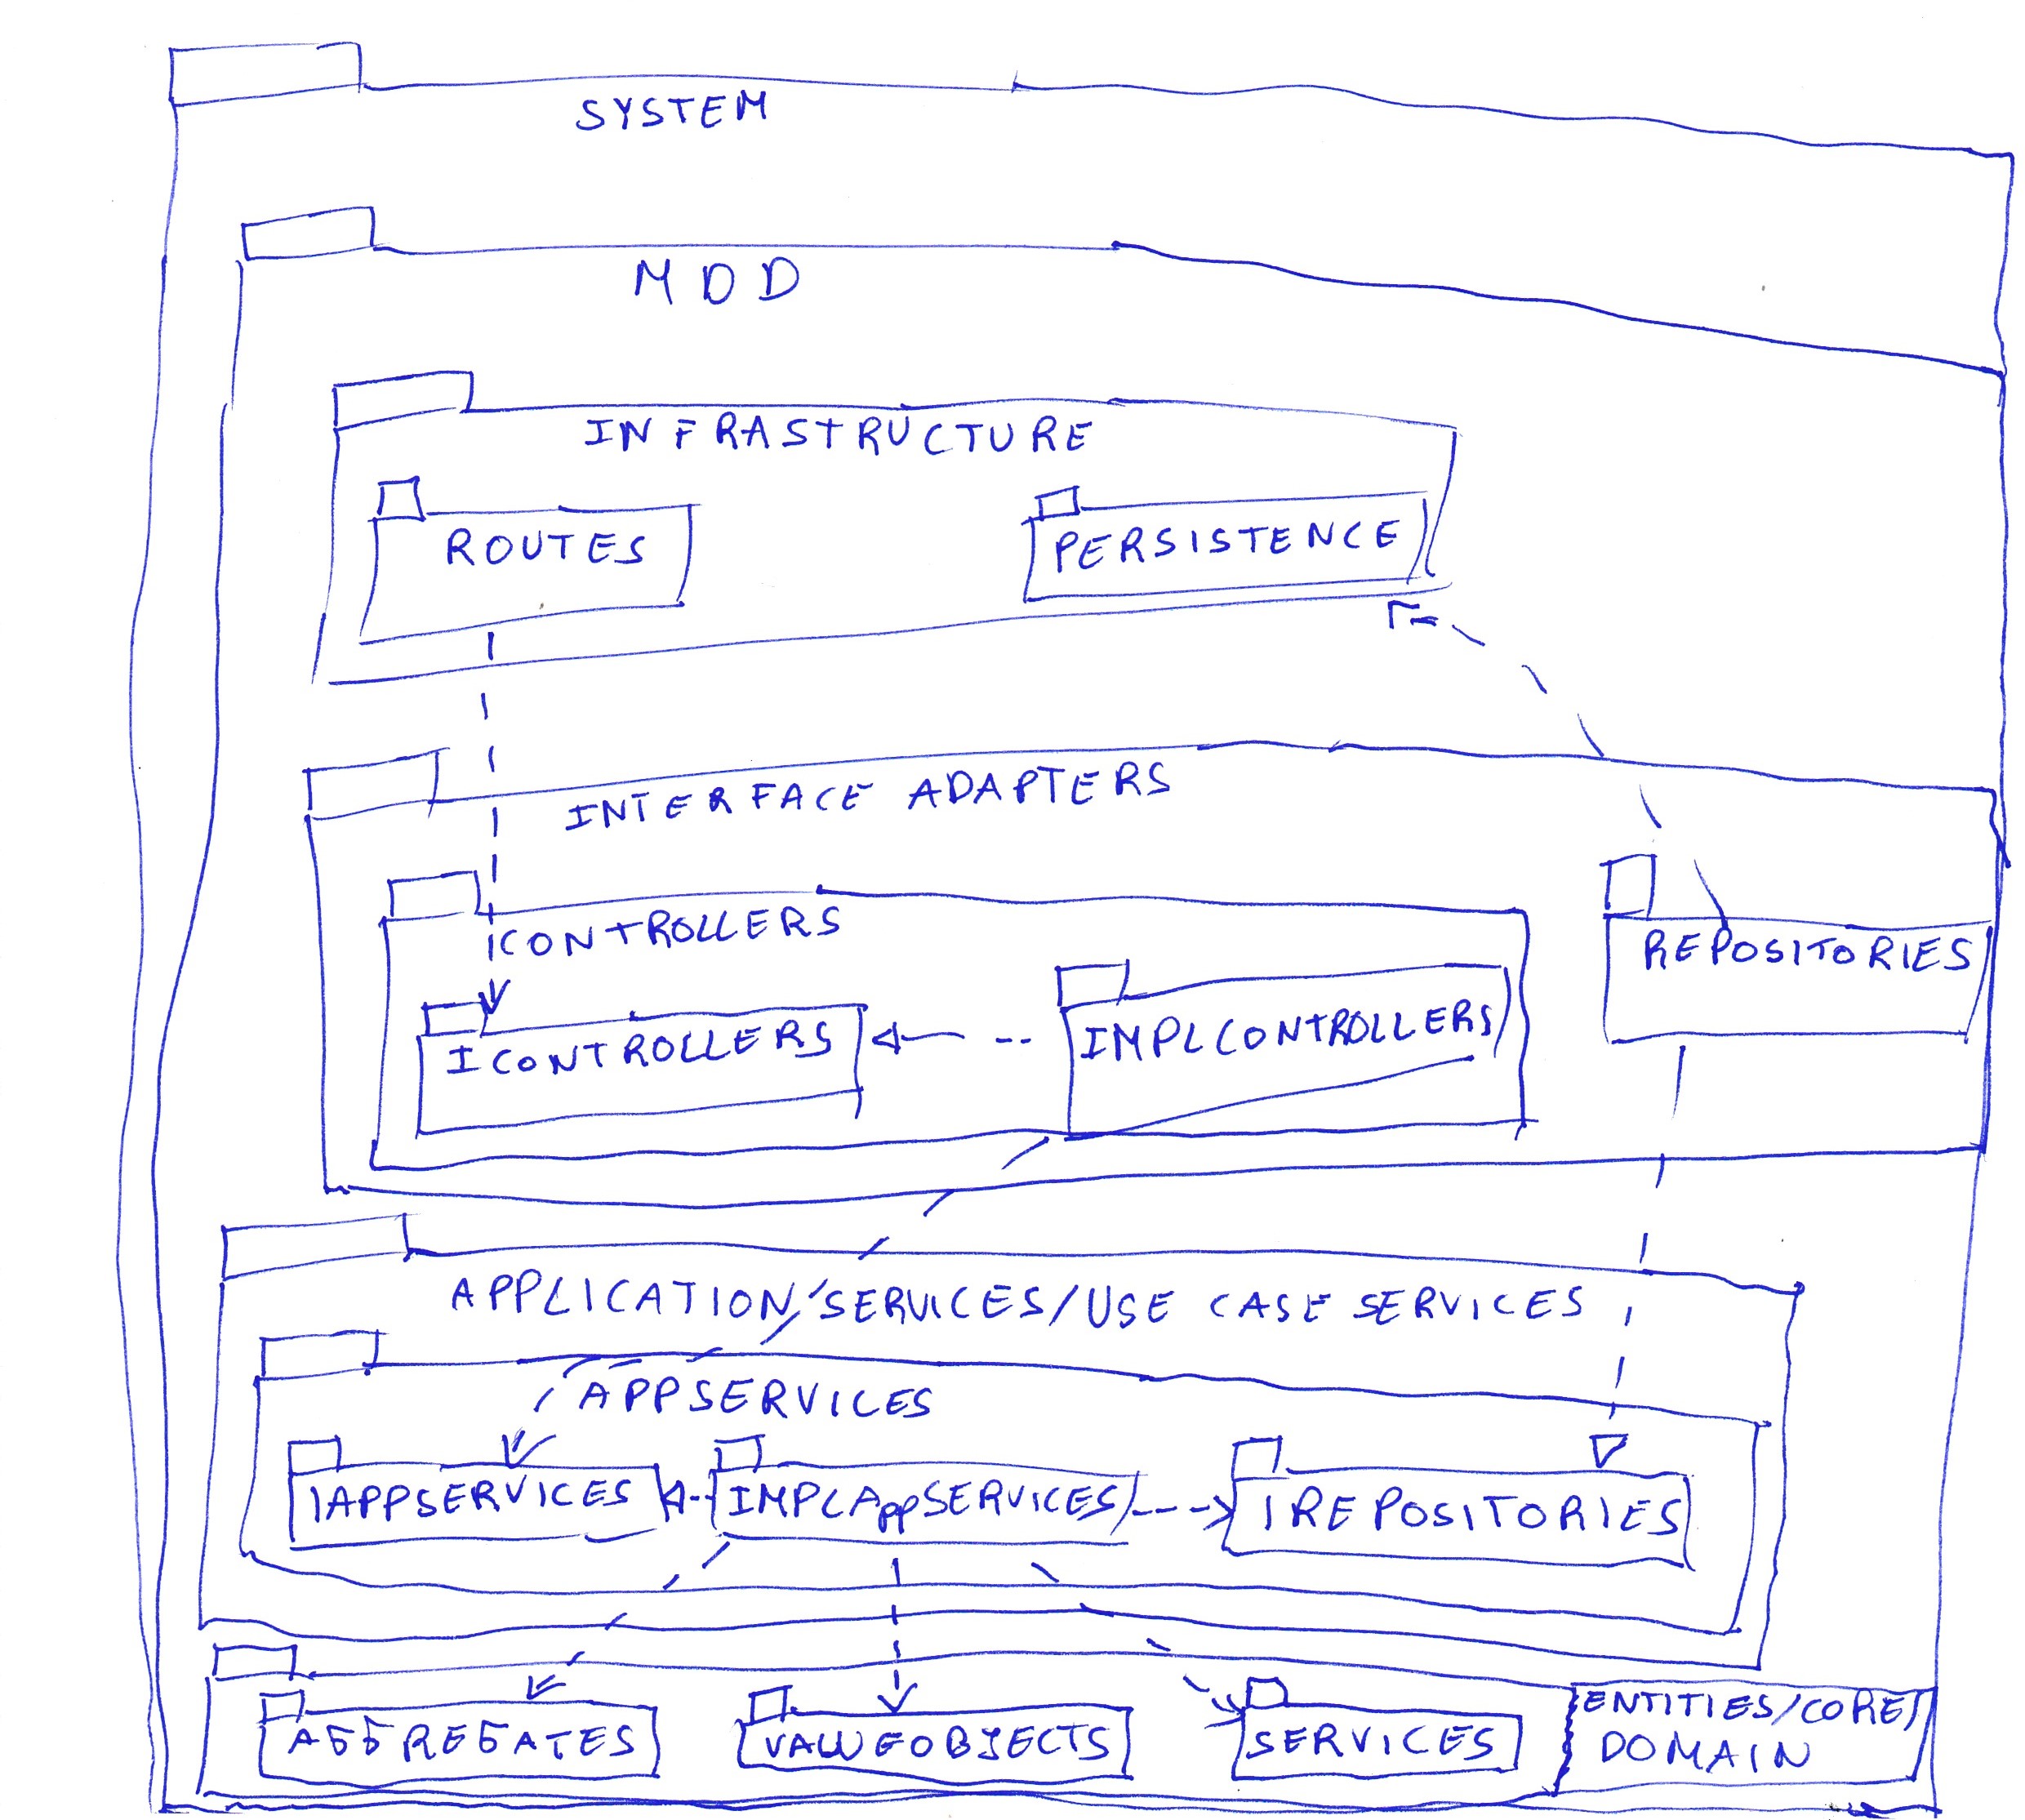 SYSTEM
MDD
INFRASTRUCTURE
ROUTES
PERSISTENCE
INTERFACE ADAPTERS
CONTROLLERS
REPOSITORIES
ICONTROLLERS
IMPLCONTROLLERS
APPLICATION/SERVICES/USE CASE SERVICES
APPSERVICES
IAPPSERVICES
IMPLAppSERVICES
IREPOSITORIES
AGGREGATES
VALUEOBJECTS
SERVICES
ENTITIES/CORE/
DOMAIN